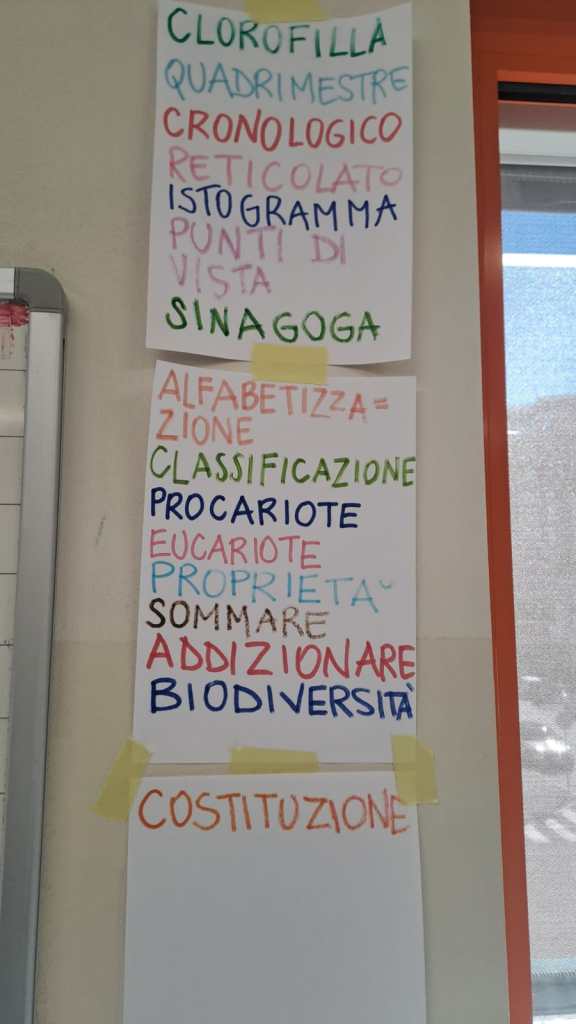 CLOROFILLA
QUADRIMESTRE
CRONOLOGICO
RETICOLATO
ISTOGRAMMA
PUNTI DI
VISTA
SINAGOGA
ALFABETIZZA=
ZIONE
CLASSIFICAZIONE
PROCARIOTE
EUCARIOTE
PROPRIETA˘
SOMMARE
ADDIZIONARE
BIODIVERSITÀ
COSTITUZIONE